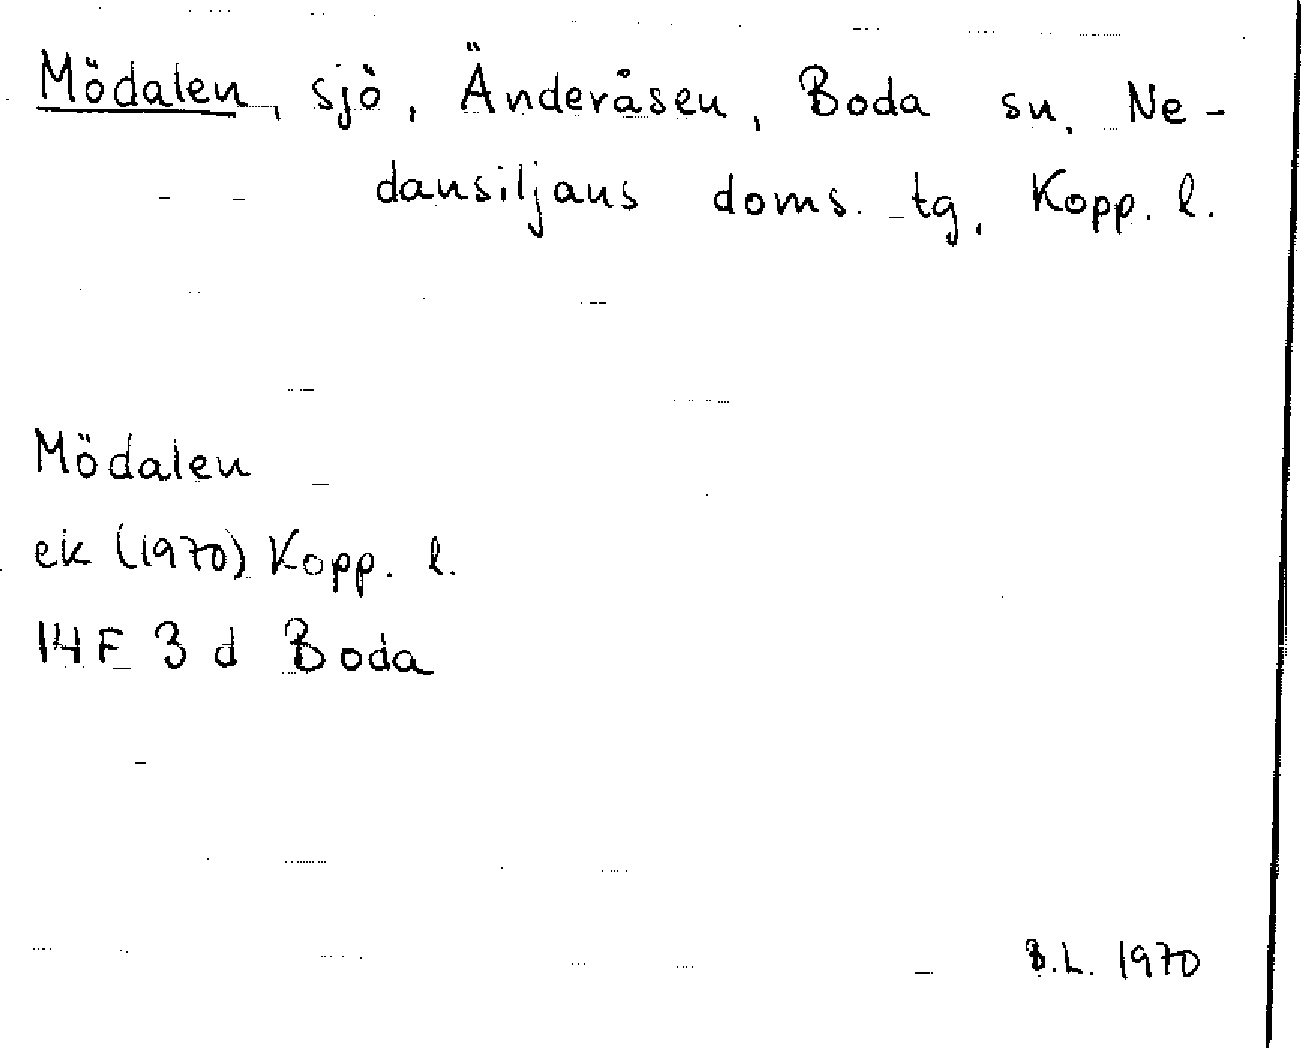 Mödalen, sjö, Änderåsen, Boda sn, Ne-
dansiljans doms. tg, Kopp. l.
Mödalen
ek (1970) Kopp. l.
14F 3 d Boda
B.L. 1970